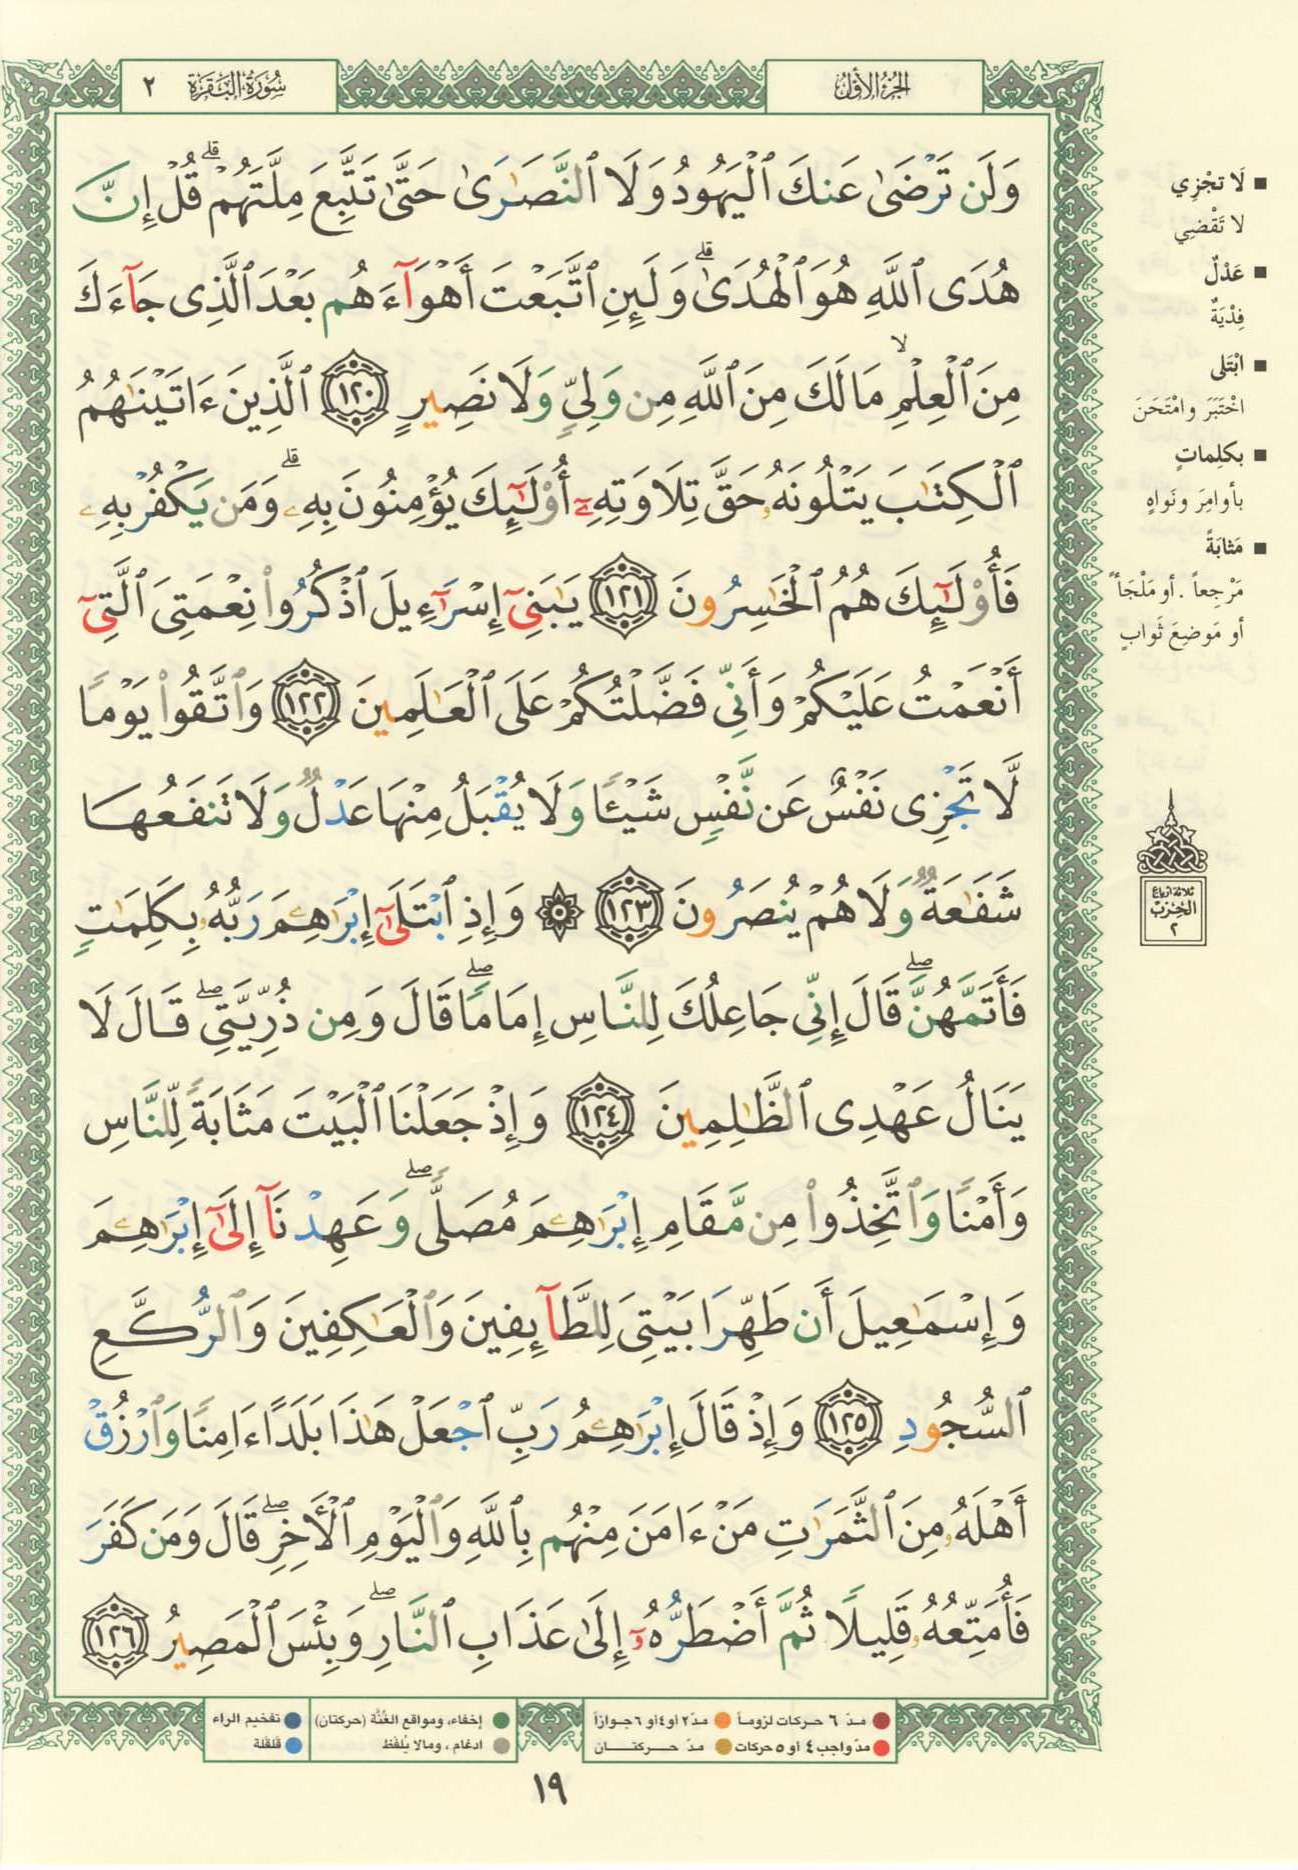 الجزء الأول
سورة البقرة ٢
وَلَن تَرْضَىٰ عَنكَ ٱلْيَهُودُ وَلَا ٱلنَّصَـٰرَىٰ حَتَّىٰ تَتَّبِعَ مِلَّتَهُمْ ۗ قُلْ إِنَّ
هُدَى ٱللَّهِ هُوَ ٱلْهُدَىٰ ۗ وَلَئِنِ ٱتَّبَعْتَ أَهْوَآءَهُم بَعْدَ ٱلَّذِى جَآءَكَ
مِنَ ٱلْعِلْمِ ۙ مَا لَكَ مِنَ ٱللَّهِ مِن وَلِىٍّ وَلَا نَصِيرٍ ١٢٠ ٱلَّذِينَ ءَاتَيْنَـٰهُمُ
ٱلْكِتَـٰبَ يَتْلُونَهُۥ حَقَّ تِلَاوَتِهِۦٓ أُو۟لَـٰٓئِكَ يُؤْمِنُونَ بِهِۦ ۗ وَمَن يَكْفُرْ بِهِۦ
فَأُو۟لَـٰٓئِكَ هُمُ ٱلْخَـٰسِرُونَ ١٢١ يَـٰبَنِىٓ إِسْرَٰٓءِيلَ ٱذْكُرُوا۟ نِعْمَتِىَ ٱلَّتِىٓ
أَنْعَمْتُ عَلَيْكُمْ وَأَنِّى فَضَّلْتُكُمْ عَلَى ٱلْعَـٰلَمِينَ ١٢٢ وَٱتَّقُوا۟ يَوْمًا
لَّا تَجْزِى نَفْسٌ عَن نَّفْسٍ شَيْـًٔا وَلَا يُقْبَلُ مِنْهَا عَدْلٌ وَلَا تَنفَعُهَا
شَفَـٰعَةٌ وَلَا هُمْ يُنصَرُونَ ١٢٣ ۞ وَإِذِ ٱبْتَلَىٰٓ إِبْرَٰهِـۧمَ رَبُّهُۥ بِكَلِمَـٰتٍ
فَأَتَمَّهُنَّ ۖ قَالَ إِنِّى جَاعِلُكَ لِلنَّاسِ إِمَامًا ۖ قَالَ وَمِن ذُرِّيَّتِى ۖ قَالَ لَا
يَنَالُ عَهْدِى ٱلظَّـٰلِمِينَ ١٢٤ وَإِذْ جَعَلْنَا ٱلْبَيْتَ مَثَابَةً لِّلنَّاسِ
وَأَمْنًا وَٱتَّخِذُوا۟ مِن مَّقَامِ إِبْرَٰهِـۧمَ مُصَلًّى ۖ وَعَهِدْنَآ إِلَىٰٓ إِبْرَٰهِـۧمَ
وَإِسْمَـٰعِيلَ أَن طَهِّرَا بَيْتِىَ لِلطَّآئِفِينَ وَٱلْعَـٰكِفِينَ وَٱلرُّكَّعِ
ٱلسُّجُودِ ١٢٥ وَإِذْ قَالَ إِبْرَٰهِـۧمُ رَبِّ ٱجْعَلْ هَـٰذَا بَلَدًا ءَامِنًا وَٱرْزُقْ
أَهْلَهُۥ مِنَ ٱلثَّمَرَٰتِ مَنْ ءَامَنَ مِنْهُم بِٱللَّهِ وَٱلْيَوْمِ ٱلْـَٔاخِرِ ۖ قَالَ وَمَن كَفَرَ
فَأُمَتِّعُهُۥ قَلِيلًا ثُمَّ أَضْطَرُّهُۥٓ إِلَىٰ عَذَابِ ٱلنَّارِ ۖ وَبِئْسَ ٱلْمَصِيرُ ١٢٦
■ لَا تَجْزِي
لا تَقْضِي
■ عَدْلٌ
فِدْيَةٌ
■ ابْتَلى
اخْتَبَرَ وامْتَحَنَ
■ بكلِماتٍ
بأوامِرَ ونَواهٍ
■ مَثابَةً
مَرْجِعاً. أو مَلْجَأً
أو مَوضِعَ ثَوابٍ
ثلاثة أرباع
الحزب
٢
مدّ ٦ حركات لزوماً
مدّ ٢ أو ٤ أو ٦ جوازاً
مدّ واجب ٤ أو ٥ حركات
مدّ حركتان
إخفاء، ومواقع الغُنَّة (حركتان)
ادغام، ومالا يُلفظ
تفخيم الراء
قلقلة
١٩